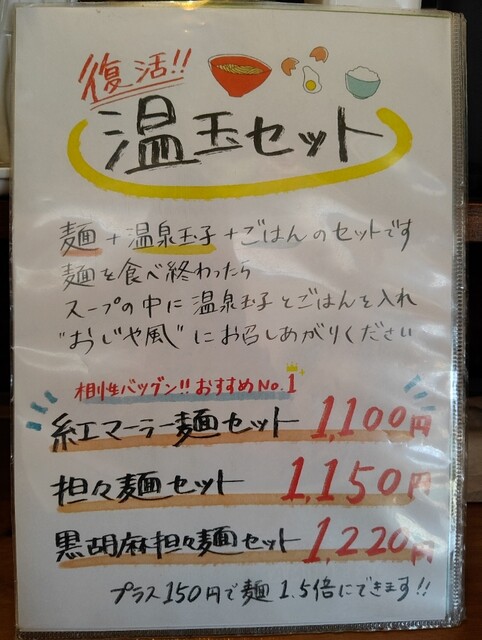 復活!!
温玉セット
麺+温泉玉子+ごはんのセットです
麺を食べ終わったら
スープの中に温泉玉子とごはんを入れ
"おじや風"にお召しあがりください
相性バツグン!!おすすめNo.1
紅マーラー麺セット 1,100円
担々麺セット 1,150円
黒胡麻担々麺セット 1,220円
プラス150円で麺1.5倍にできます!!